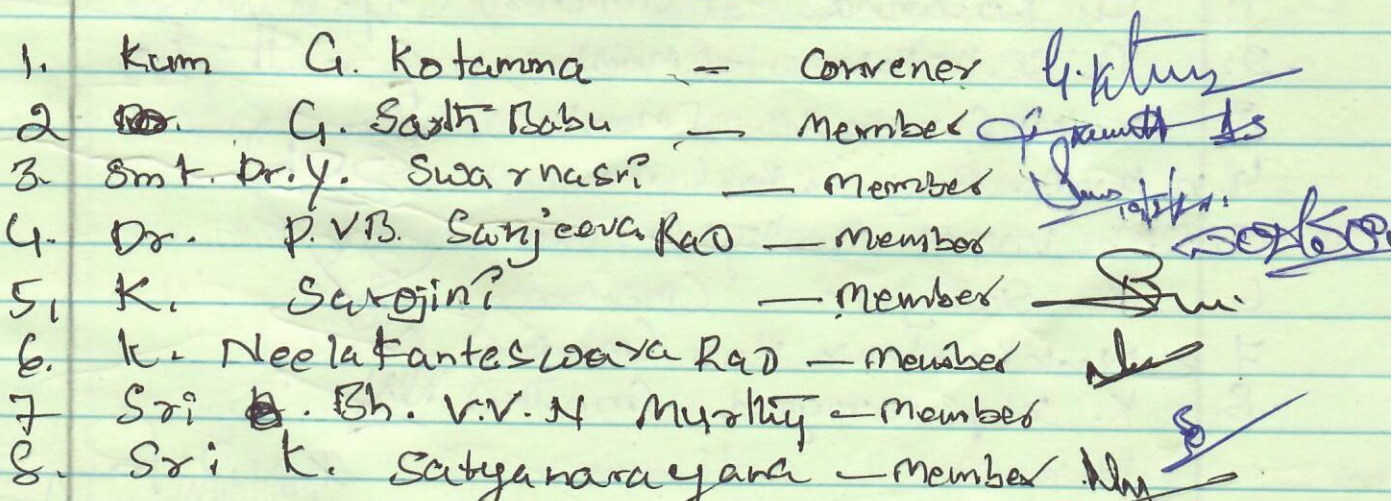 1. Kum G. Kotamma - Convener
2 G. Sarth Babu - Member
3. Smt. Dr. Y. Swarnasri - Member
4. Dr. P. VB. Sanjeeva Rao - Member
5, K. Sarojini - Member
6. K. Neelakanteswara Rao - Member
7 Sri Bh. V.V.N Murthy - Member
8. Sri K. Satyanarayana - Member